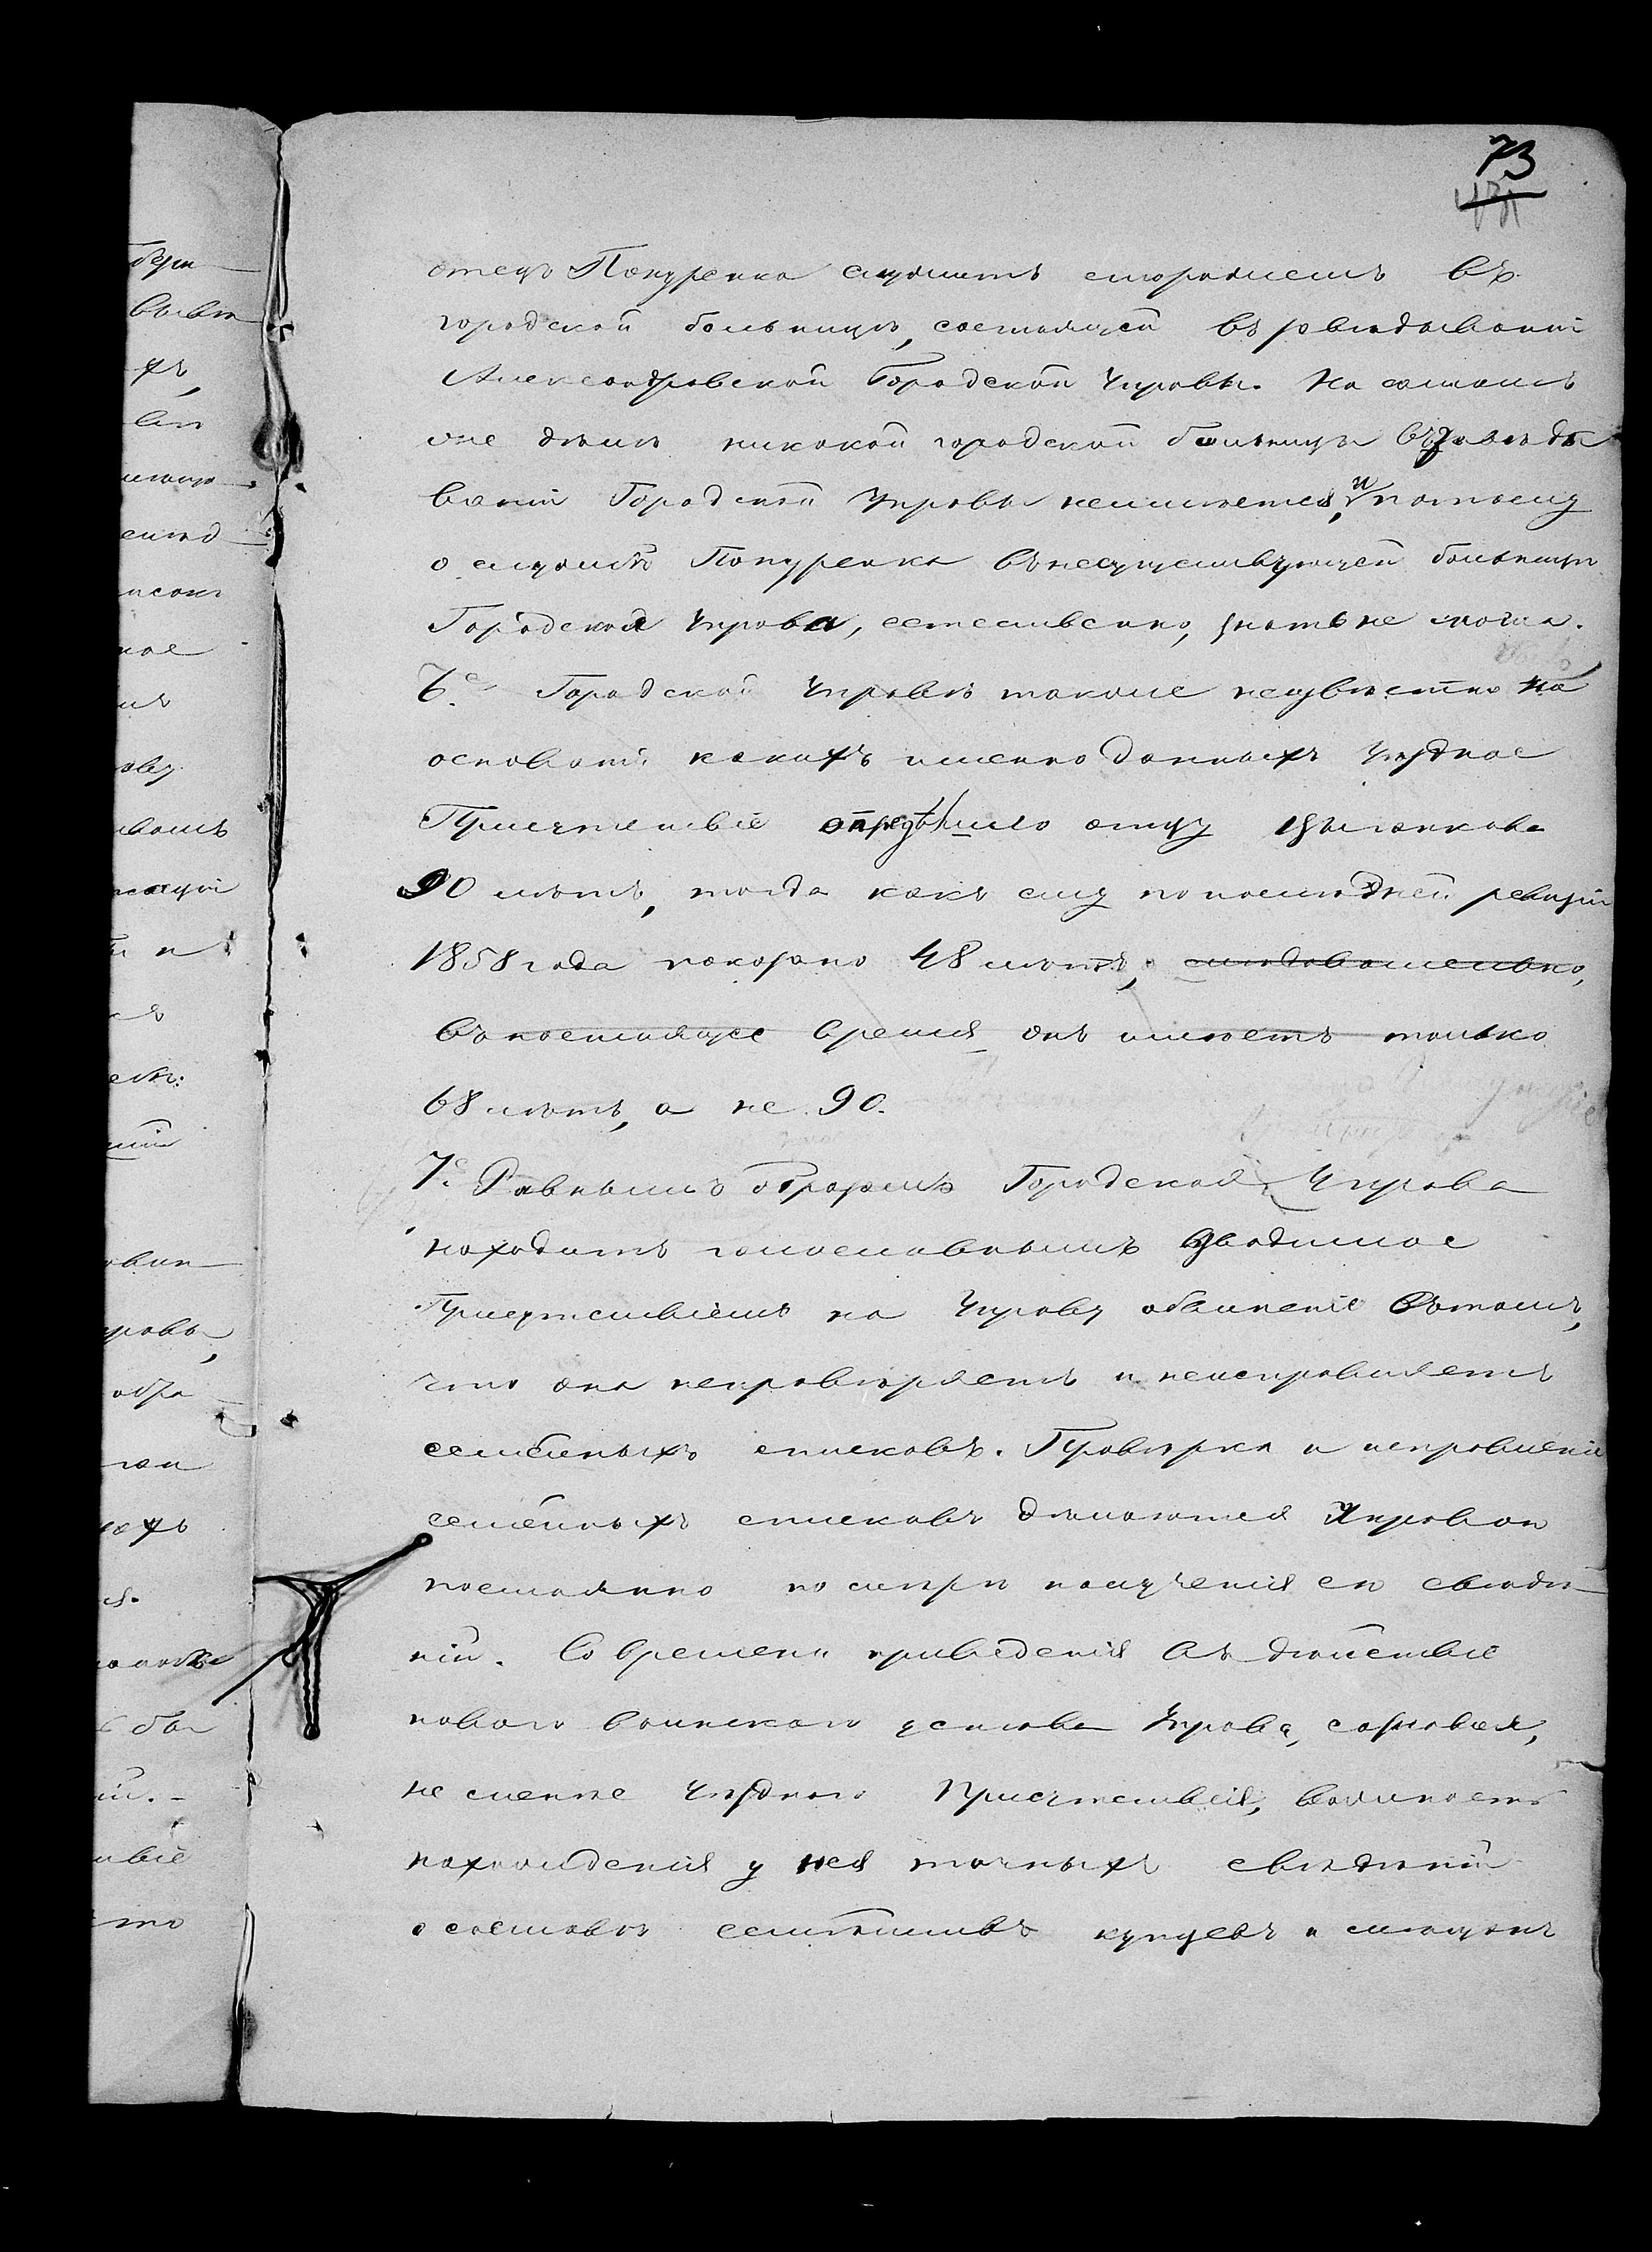 73
отецъ Покуренка служитъ сторожемъ въ
городской больницѣ, состоящей въ завѣдываніи
Александровской Городской Управы. На самомъ
же дѣлѣ никакой городской больницы въ завѣды
ваніи Городской Управы неимѣется, и потому
о службѣ Покуренка въ несуществующей больницѣ
Городская Управа, естественно, знать не могла.
6.е Городской Управѣ также неизвѣстно на
основаніи какихъ именно данныхъ Уѣздное
Присутствіе опредѣлило отцу Цыганкова
90 лѣтъ, тогда какъ ему по послѣдней ревизіи
1858 года показано 48 лѣтъ, слѣдовательно,
въ настоящее время онъ имѣетъ только
68 лѣтъ, а не 90.
7.е Равнымъ образомъ Городская Управа
находитъ голословнымъ взводимое
Присутствіемъ на Управу обвиненіе въ томъ,
что она непровѣряетъ и неисправляетъ
семейныхъ списковъ. Провѣрка и исправленіе
семейныхъ списковъ дѣлаются Управою
постоянно по мѣрѣ полученія ею свѣдѣ-
ній. Со времени приведенія въ дѣйствіе
новаго воинскаго устава Управа, сознавая,
не менѣе Уѣзднаго Присутствія, важность
нахожденія у нея точныхъ свѣдѣній
о составѣ семействъ купцевъ и мѣщанъ